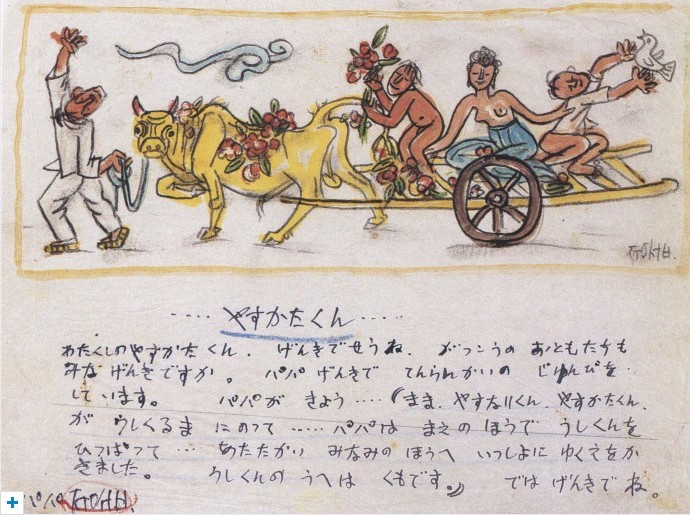 ㅈㅜㅇㅅㅓㅂ
..... やすかたくん .....
わたくしのやすかたくん. げんきでせうね. がっこうの おともたちも
みな げんきですか。 パパ げんきで てんらんかいの じゆんびを
しています。 パパが きょう ....(まま. やすなりくん. やすかたくん.
が うしくるま にのって ..... パパは まえの ほうで うしくんを
ひっぱって ... あたたかい みなみのほうへ いつしよに ゆくえをか
きました。 うしくんの うへは くもです。) では げんきで ね。
パパ ㅈㅜㅇㅅㅓㅂ.